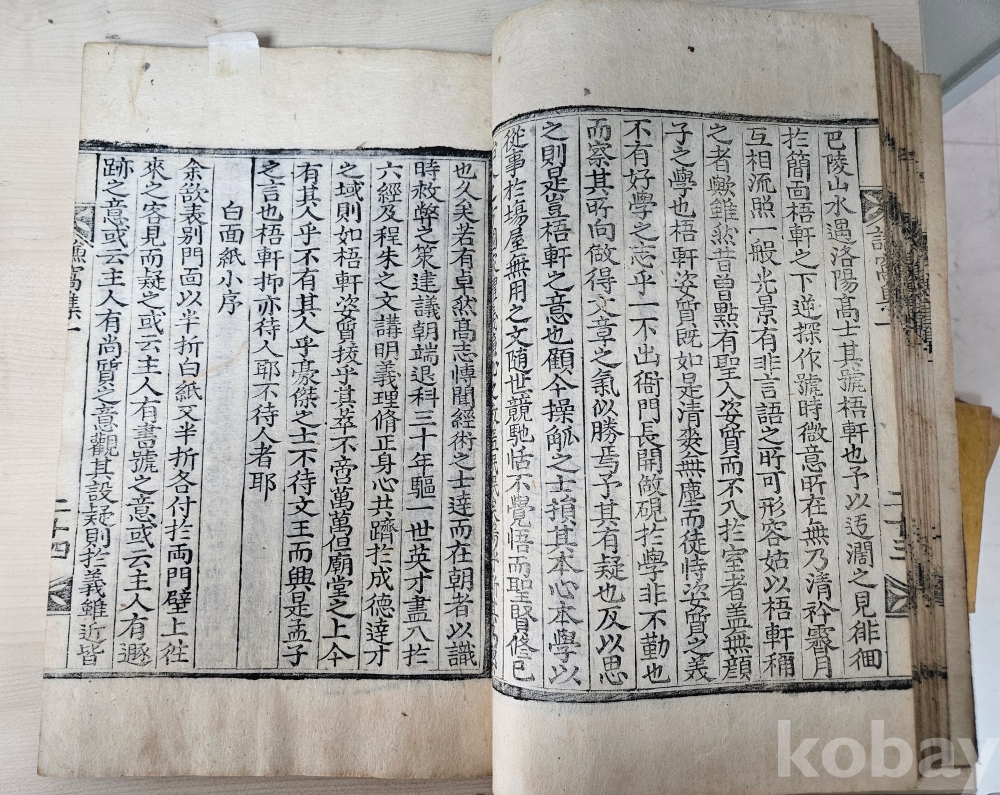 巴陵山水遇洛陽高士其號梧軒也予以迃濶之見徘徊
扵簡面梧軒之下逆探作號時微意所在無乃清衿霽月
互相流照一般光景有非言語之所可形容姑以梧軒稱
之者歟雖然昔曾點有聖人姿質而不入扵室者盖無顔
子之學也梧軒姿質既如是清爽無塵而徒恃姿質之羙
不有好學之志乎一不出衙門長開倣硯扵學非不勤也
而察其所向做得文章之氣以勝焉予其有疑也反以思
之則是豈梧軒之意也顧今操觚之士損其本心本學以
從事扵場屋無用之文随世競馳恬不覺悟而聖賢修己
二十三
也久矣若有卓然髙志慱聞經術之士達而在朝者以識
時救弊之策建議朝端退科三十年驅一世英才盡入扵
六經及程朱之文講明義理脩正身心共躋扵成德達才
之域則如梧軒姿質挍乎其萃不啻萬萬但廟堂之上今
有其人乎不有其人乎豪傑之士不待文王而興是孟子
之言也梧軒抑亦待人耶不待人者耶
白面紙小序
余欲表别門面以半折白紙又半折各付扵両門壁上徃
來之客見而疑之或云主人有書號之意或云主人有遯
跡之意或云主人有尚質之意觀其設疑則扵義雖近皆
窩集一
二十四
kobay